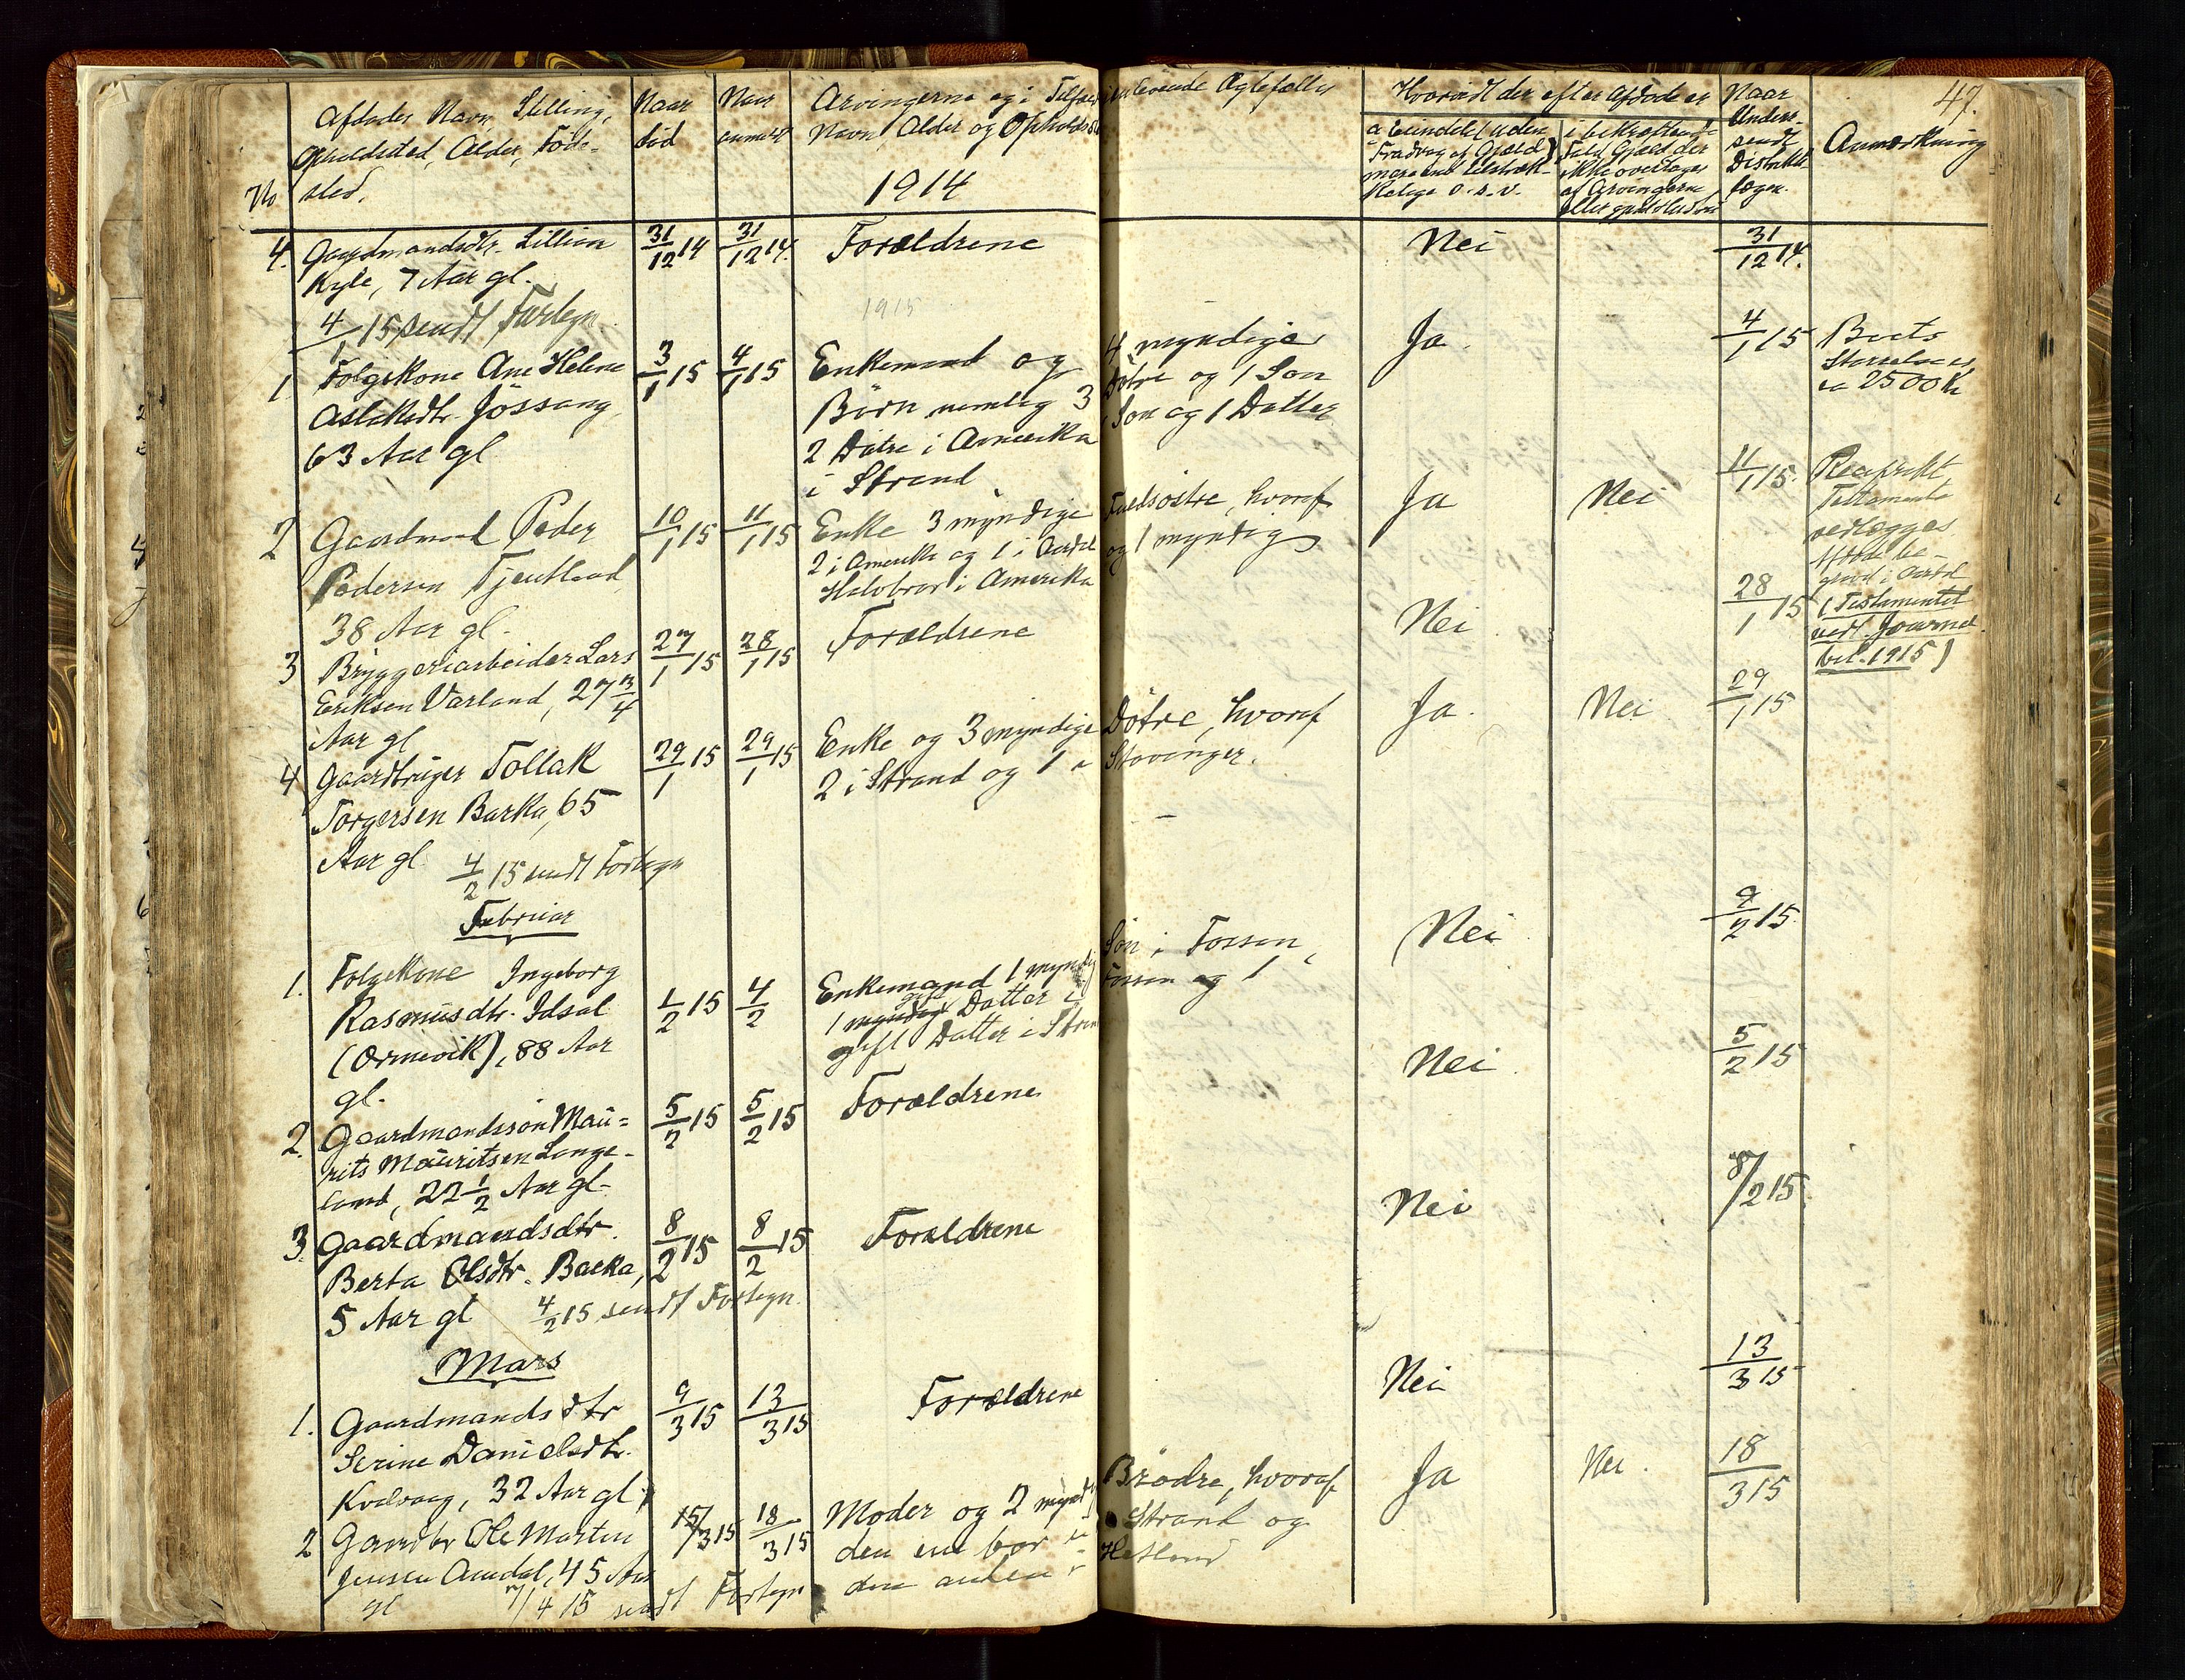 47.
No
Afdødes Navn, Stilling,
Opholdssted, Alder, Føde-
sted.
Naar
død
Naar
anmeldt
Arvingerne og i Tilfælde efterlevende Ægtefælles
Navn, Alder og Opholdssted
1914
Hvorvidt der efter Afdøde er
a Eiendele (uden
Fradrag af Gjæld)
mere end tilstræk-
kelige o.s.v.
i bekræftende
Fald Gjæld der
ikke overtages
af Arvingerne
Naar
Under-
sendt
Distrikt-
fogen.
Anmærkning
4. Gaardmandsdtr. Lillian
Kyle, 7 Aar gl.
31/12 14
31/12 14.
Forældrene
Nei
31/12 14.
4/1 15 sendt Fortegn.
1915
1. Folgekone Ane Helene
Aslaksdtr. Jössang
63 Aar gl
3/1 15
4/1 15
Enkemand og 4 myndige
Børn nemlig 3 Døtre og 1 Søn
2 Døtre i Amerika 1 Søn og 1 Datter
i Strand
Ja.
4/1 15
Boets
Størrelse er
ca 2500 Kr
2 Gaardmand Peder
Pedersen Tjentland
38 Aar gl.
10/1 15
11/1 15
Enke 3 myndige Fuldsøstre, hvoraf
2 i Amerika og 1 i Aardal og 1 myndig
Halvbror i Amerika
Ja
Nei
11/1 15.
Testamente
vedlægges
Afdøde be-
gravd i Aardal
(Testamentet
vedl. Journal
bil. 1915)
3 Bryggeriarbeider Lars
Eriksen Varland, 27 3/4
Aar gl
27/1 15
28/1 15
Forældrene
Nei
28/1 15
4 Gaardbruger Tollak
Torgersen Barka, 65
Aar gl.
29/1 15
29/1 15
Enke og 3 myndige Døtre, hvoraf
2 i Strand og 1 i Stavanger.
Ja.
Nei
29/1 15
4/2 15 sendt Fortegn
Februar
1. Folgekone Ingeborg
Rasmusdtr. Idsal
(Ørnevik), 88 Aar
gl.
1/2 15
4/2
Enkemand 1 myndig Søn i Fossan,
1 myndig gift Datter i Fossan og 1
gift Datter i Strand
Nei
9/2 15.
2. Gaardmandssøn Mau-
rits Mauritsen Lange-
land, 22 1/2 Aar gl.
5/2 15
5/2 15
Forældrene
Nei
5/2 15
3. Gaardmandsdtr.
Berta Olsdtr. Barka,
5 Aar gl
8/2 15
8/2 15
Forældrene
Nei
8/2 15.
4/2 15 sendt Fortegn.
Mars
1. Gaardmandsdtr
Serine Danielsdtr.
Kvalvaag, 32 Aar gl
9/3 15
13/3 15
Forældrene
Nei
13/3 15
2 Gaardbr Ole Martin
Jensen Amdal, 45 Aar
gl
15/3 15
18/3 15
Moder og 2 mynd. Brødre, hvoraf
den ene bor i Strand og
den anden i Hetland
Ja
Nei.
18/3 15
7/4 15 sendt Fortegn